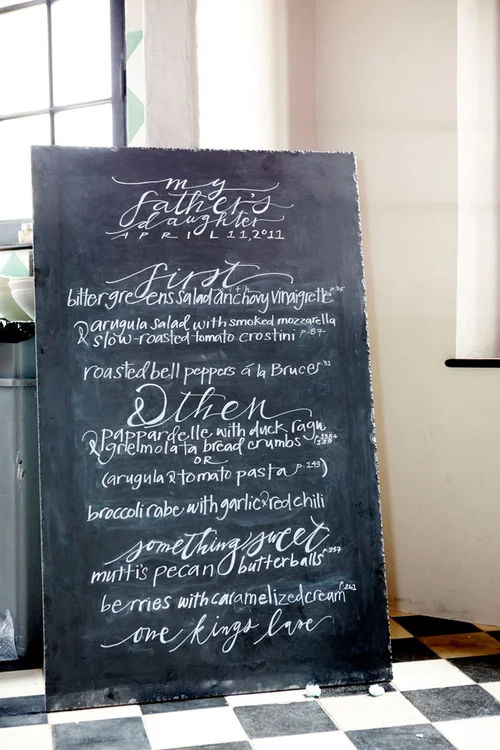 my
father's
daughter
APRIL 11, 2011
first
bitter greens salad with anchovy vinaigrette p.75
& arugula salad with smoked mozzarella
& slow-roasted tomato crostini p.87
roasted bell peppers á la Bruces 31
& then
pappardelle with duck ragu
& greimolata bread crumbs p.138+ 139
OR
(arugula & tomato pasta p.143)
broccoli rabe with garlic & red chili
something sweet
mutti's pecan butterballs p.257
berries with caramelized cream p.261
one kings lane